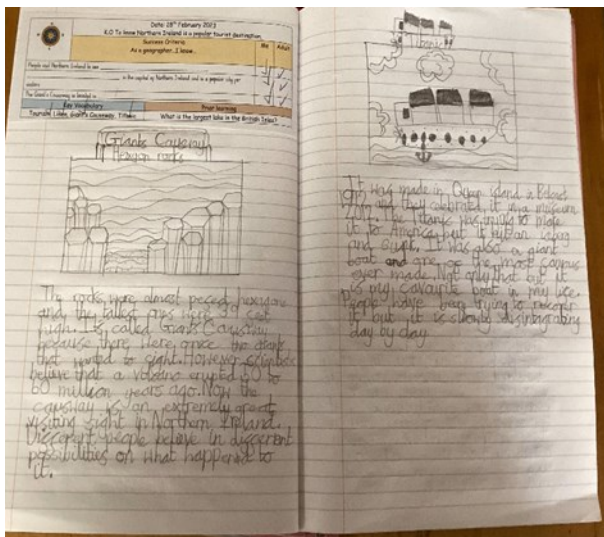 Date: 28th February 2023
K.O To know Northern Ireland is a popular tourist destination.
Success Criteria
As a geographer, I know...
Me
Adult
People visit Northern Ireland to see
is the capital of Northern Ireland and is a popular city for
visitors
The Giant's Causeway is located in
Key Vocabulary
Prior learning
Tourists, Giant's Causeway, Titanic
What is the largest lake in the British Isles?
Giants Causway
Hexagon rocks
The rocks were almost peced hexegons
and they tallest ones were 39 feet
high. Its called Giants Causway
because there were once two giants
that wanted to fight. However scientists
believe that a volcano erupted 50 to
60 million years ago. Now the
causway is an extremely great
visiting sight in Northern Ireland.
Different people believe in different
possibilities on what happened to
it.
Titanic
It was made in Queen island in Belfast
and they celebrated it in a museum
2012. The Titanic was trying to make
it to America but it hit an iceberg
and sunk. It was also a giant
boat and one of the most famous
ever made. Not only that but it
is my favourite boat in my life.
people have been trying to recover
it but it is slowly disintegrating
day by day